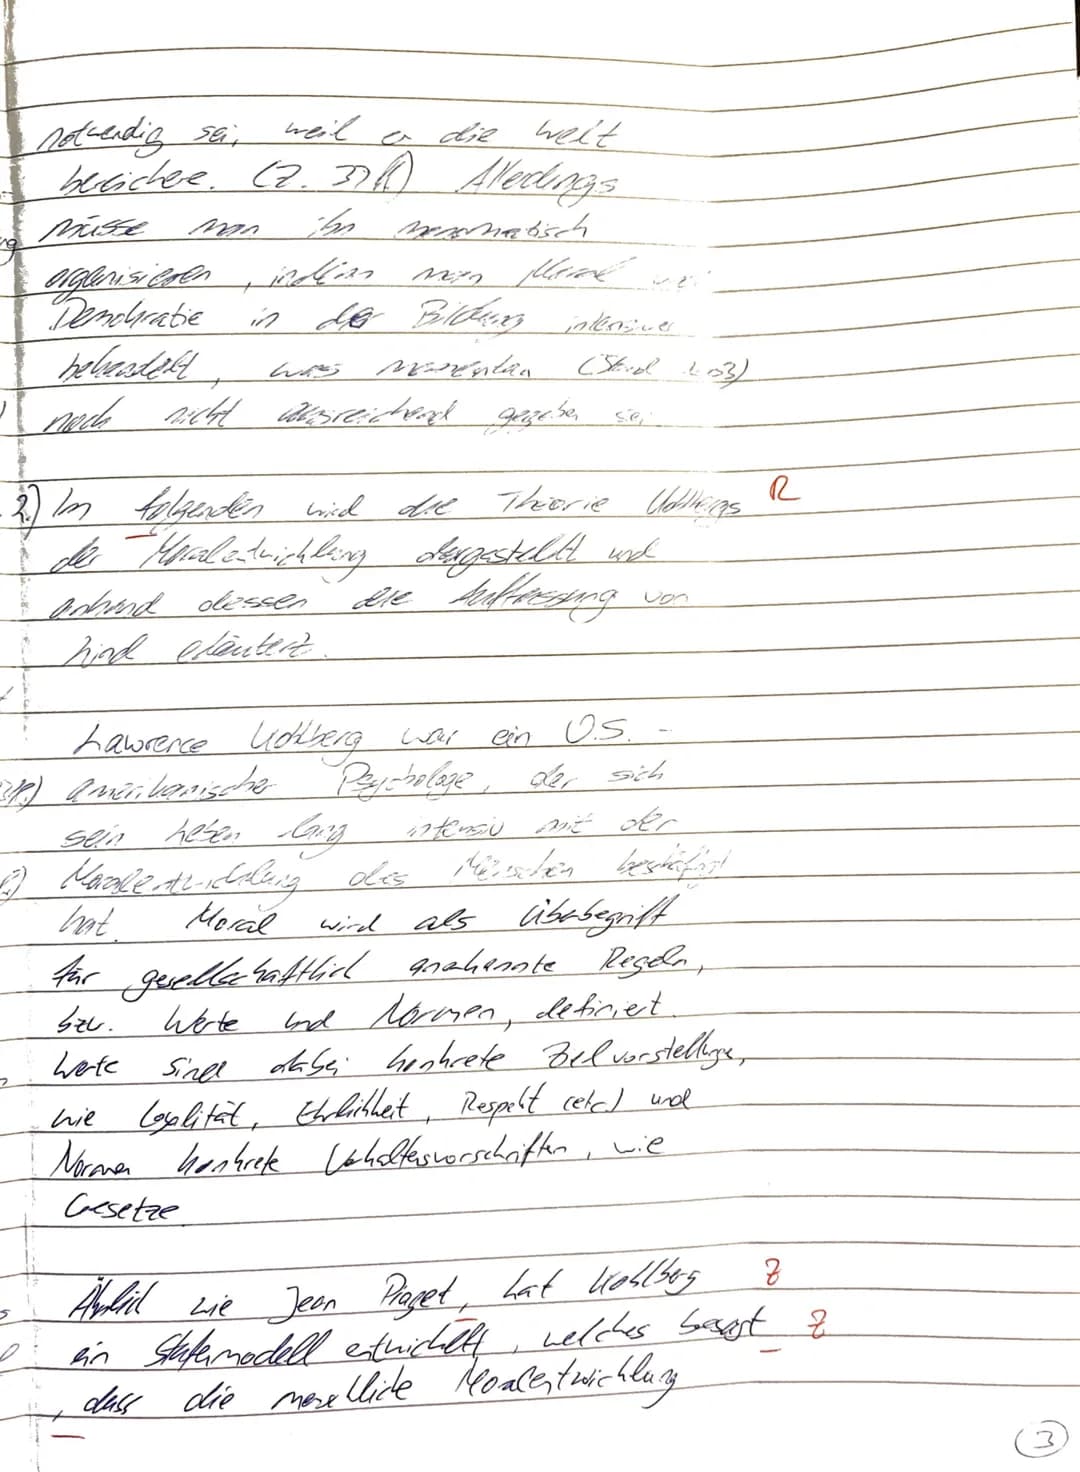 notwendig sei, weil er die Welt
bereichere. (Z. 37 ff) Allerdings
müsse man ihn
organisieren, indem man Moral und
Demokratie in der Bildung intensiver
behandelt, was momentan (Stand
noch nicht ausreichend gegeben sei
2.) Im folgenden wird die Theorie Kohlbergs R
der Moralentwicklung dargestellt und
anhand dessen die Auffassung von
Lind erläutert.
Lawrence Kohlberg war ein U.S. -
amerikanischer Psychologe, der sich
sein Leben lang intensiv mit der
Moralentwicklung des Menschen beschäftigt
hat. Moral wird als Überbegriff
für gesellschaftlich anerkannte Regeln,
bzw. Werte und Normen, definiert.
Werte sind dabei konkrete Zielvorstellungen,
wie Loyalität, Ehrlichkeit, Respekt (etc.) und
Normen konkrete Verhaltensvorschriften, wie
Gesetze
Ähnlich wie Jean Piaget, hat Kohlberg Z
ein Stufenmodell entwickelt, welches besagt Z
, dass die moralische Moralentwicklung
3